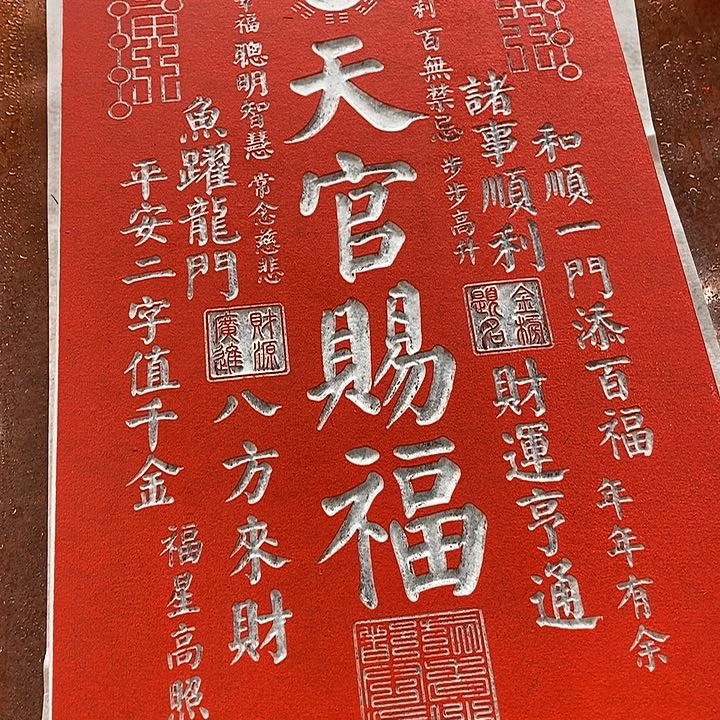 和順一門添百福
年年有余
諸事順利
金榜題名
財運亨通
百無禁忌
步步高升
天官賜福
福
聰明智慧
常念慈悲
魚躍龍門
財源廣進
八方來財
平安二字值千金
福星高照